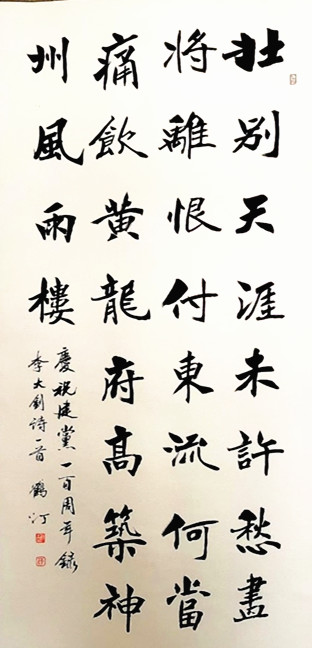 壯別天涯未許愁盡
将離恨付東流何當
痛飲黄龍府高築神
州風雨樓
慶祝建黨一百周年録
李大釗詩一首 鶴汀